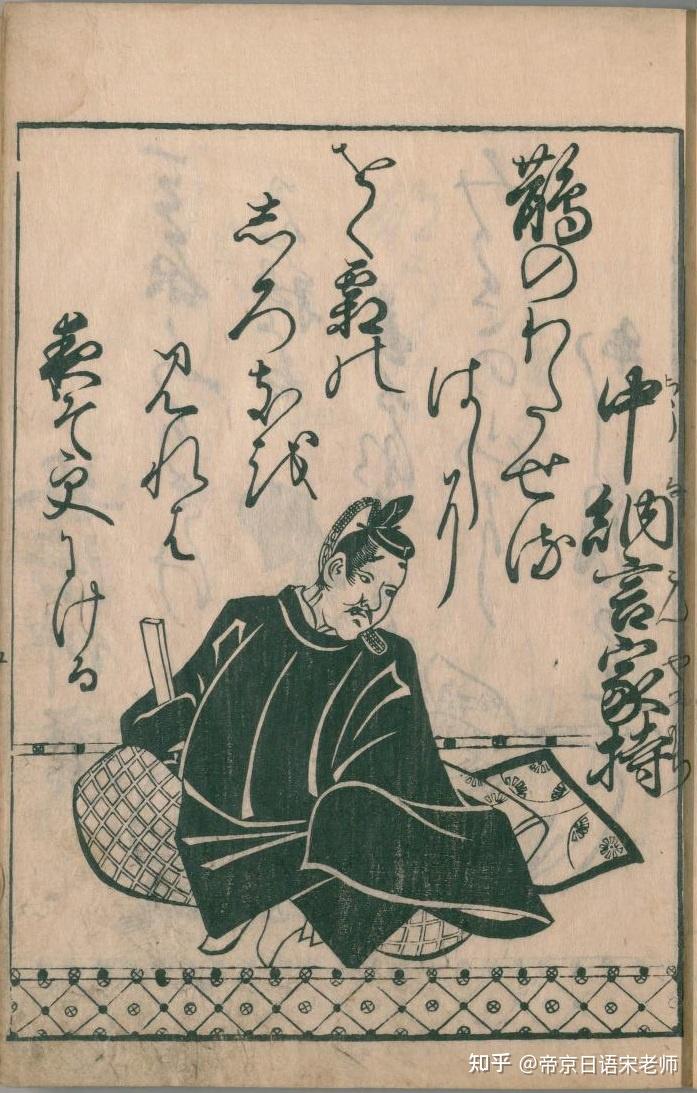 中納言家持
鵲のわたせる
はしに
をく霜の
しろきを
見れは
夜そ更にける
知乎 @帝京日语宋老师